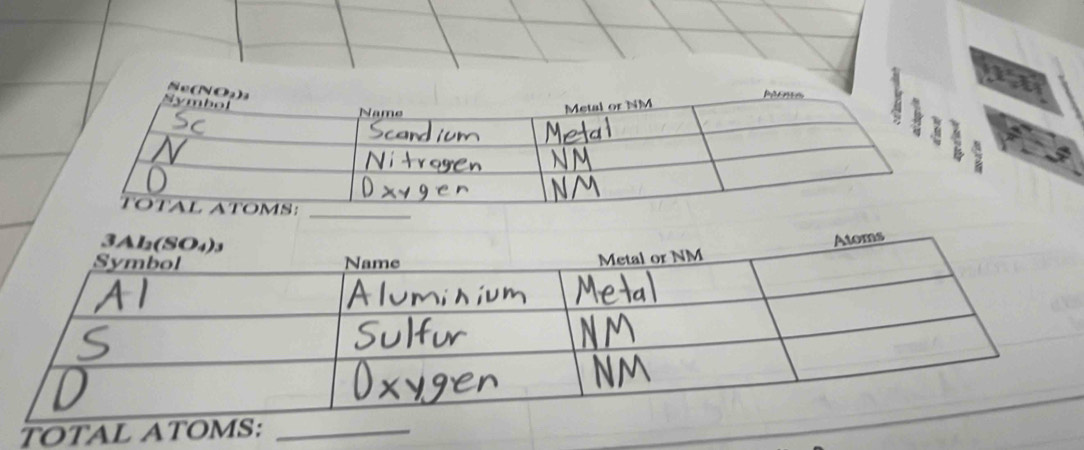 Sc(NO₃)₃
Symbol Name Metal or NM Atoms
Sc Scandium Metal
N Nitrogen NM
O Oxygen NM
TOTAL ATOMS: ______
3Al₂(SO₄)₃
Symbol Name Metal or NM Atoms
Al Aluminium Metal
S Sulfur NM
O Oxygen NM
TOTAL ATOMS: ______